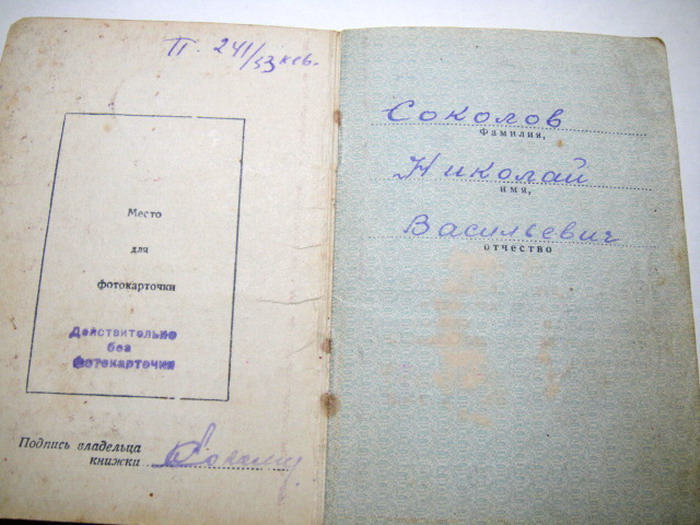 П. 241/33 кв.
Место
для
фотокарточки
Действительно
без
фотокарточки
Подпись владельца
книжки
Соколов
фамилия,
Николай
имя,
Васильевич
отчество